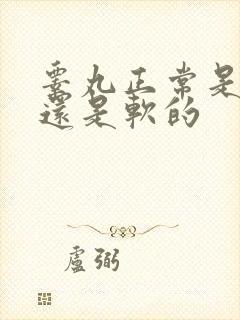 睾丸正常是
還是軟的
盧弼